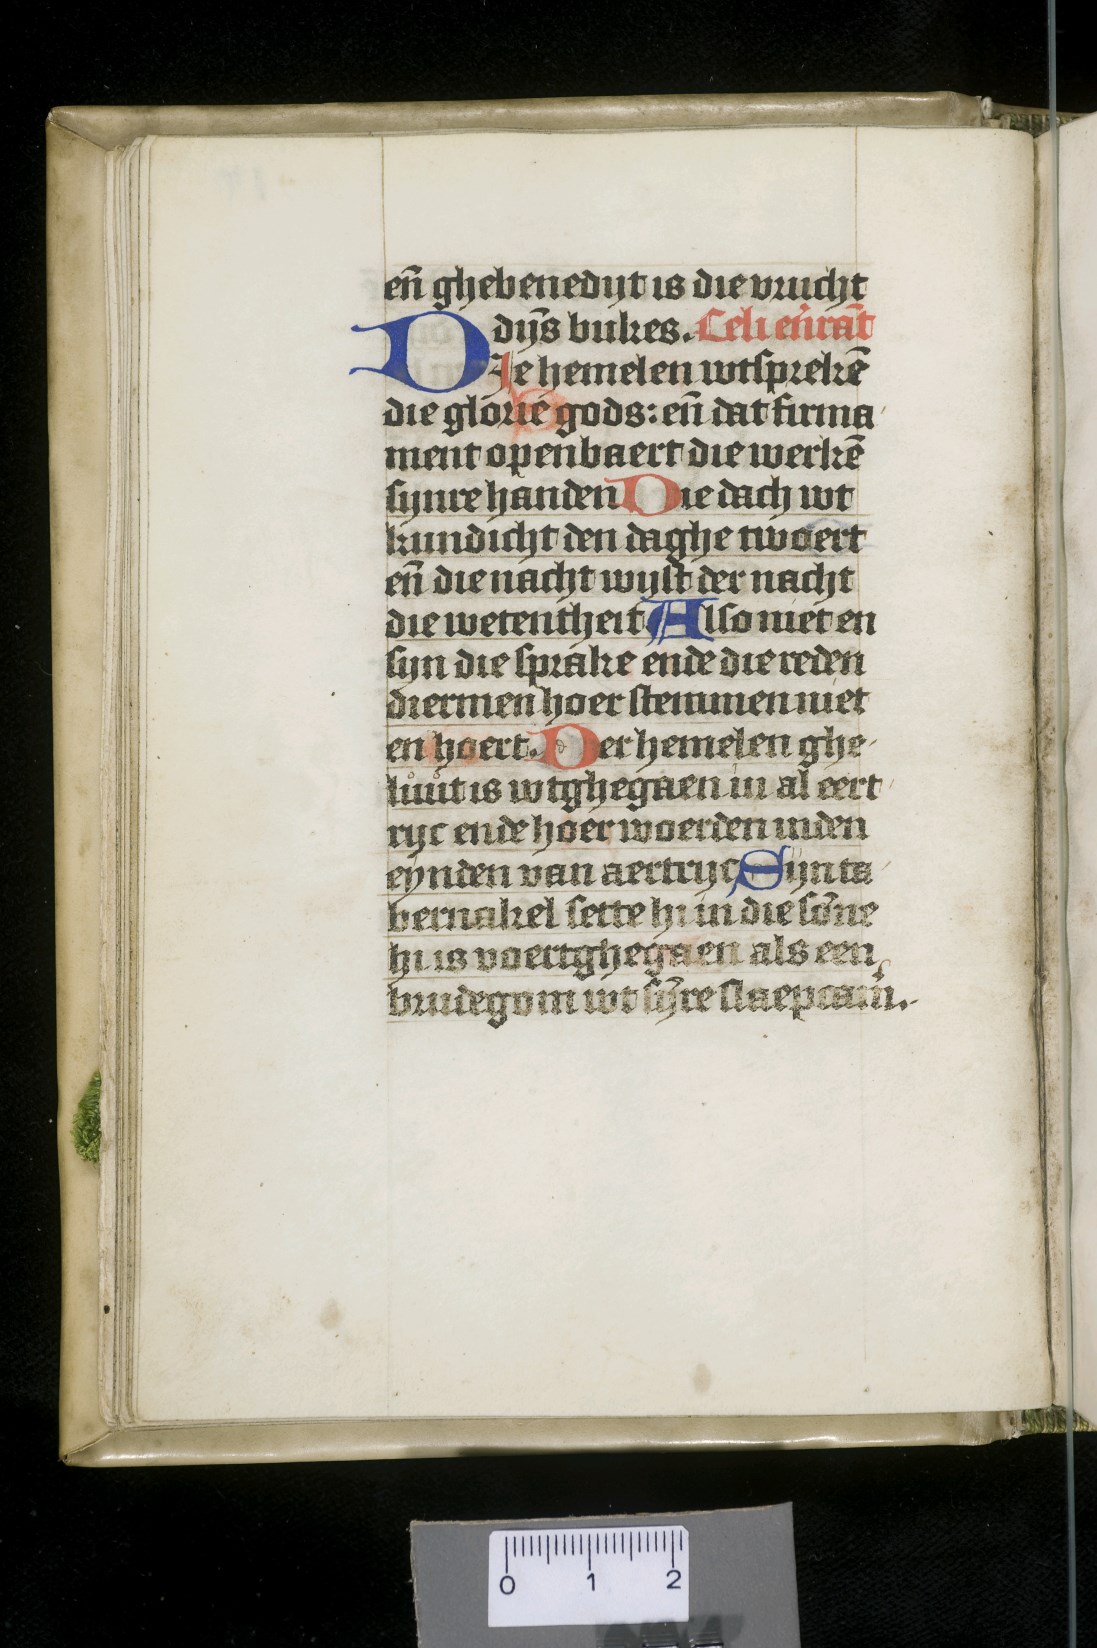 en̄ ghebenedijt is die vrucht
dijn̄s bukes. Celi en̄rāt
Die hemelen wtsprekē
die glorie gods: en̄ dat firma
ment openbaert die werkē
synre handen Die dach wt
kundicht den daghe twoert
en̄ die nacht wijst der nacht
die wetentheit Also niet en
syn die sprake ende die reden
diermen hoer stemmen niet
en hoert. Der hemelen ghe
luut is wtghegaen in al eert
ryc ende hoer woerden inden
eynden van aertryc Syn ta
bernakel sette hi in die sōne
hi is voertghegaen als een
brudegom wt sȳre slaepcam̄.
0 1 2